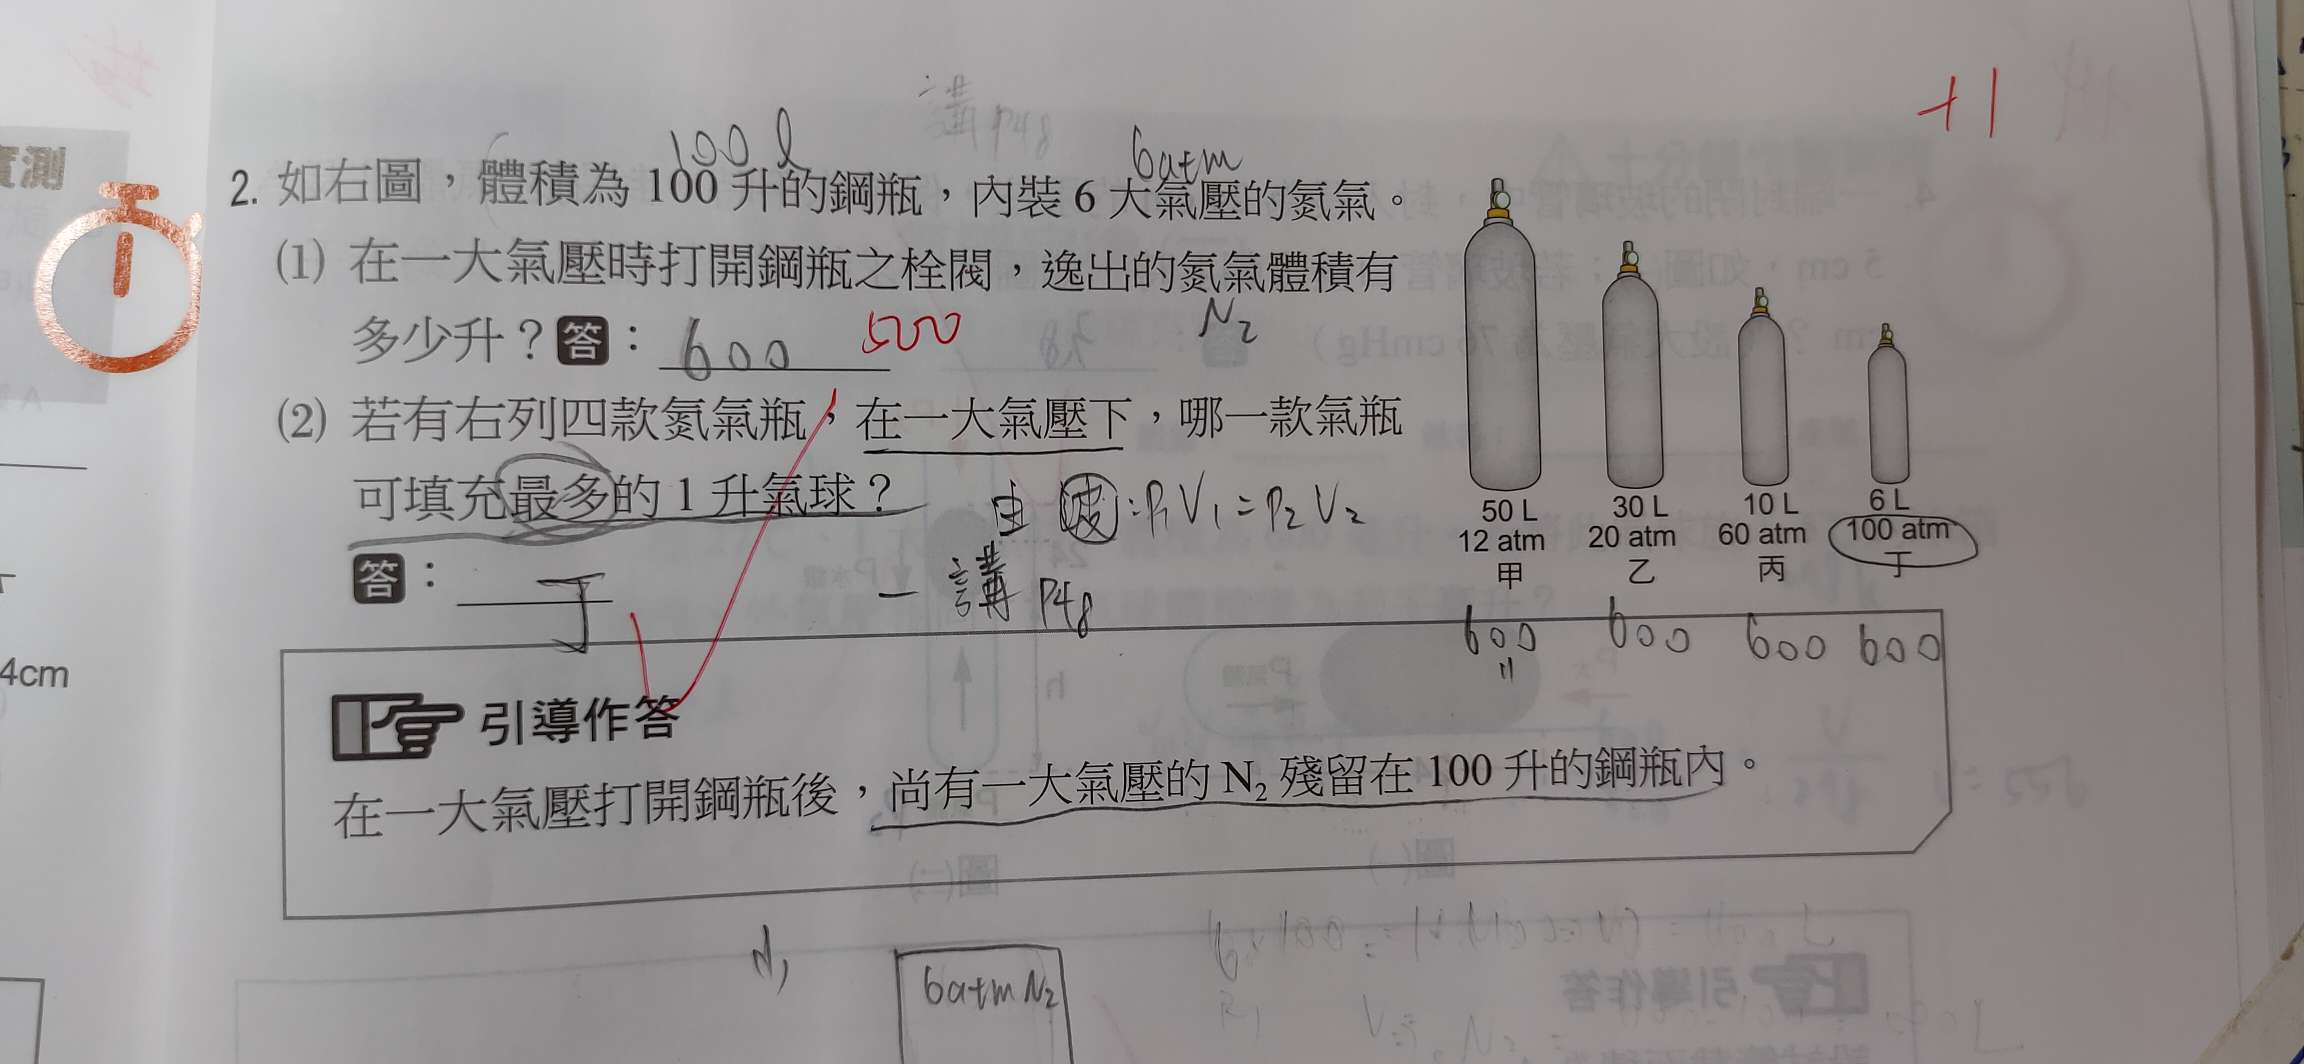 講P48
+1
100 l
6atm
實測
2. 如右圖，體積為 100 升的鋼瓶，內裝 6 大氣壓的氮氣。
(1) 在一大氣壓時打開鋼瓶之栓閥，逸出的氮氣體積有
N2
多少升？答：600 500
(2) 若有右列四款氮氣瓶，在一大氣壓下，哪一款氣瓶
可填充最多的 1 升氣球？
由波:P1V1=P2V2
答：丁
－講P48
50 L 30 L 10 L 6 L
12 atm 20 atm 60 atm 100 atm
甲 乙 丙 丁
600 600 600 600
4cm
引導作答
在一大氣壓打開鋼瓶後，尚有一大氣壓的 N₂ 殘留在 100 升的鋼瓶內。
6atm N2